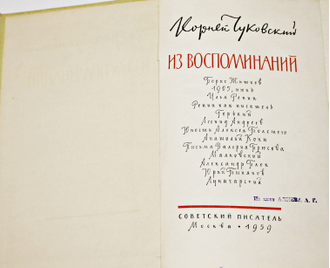 Корней Чуковский
ИЗ ВОСПОМИНАНИЙ
Борис Житков
1905, июнь
Илья Репин
Репин как писатель
Горький
Леонид Андреев
Юность Алексея Толстого
Анатолий Кони
Письма Валерия Брюсова
Маяковский
Александр Блок
Юрий Тынянов
Луначарский
СОВЕТСКИЙ ПИСАТЕЛЬ
Москва • 1959